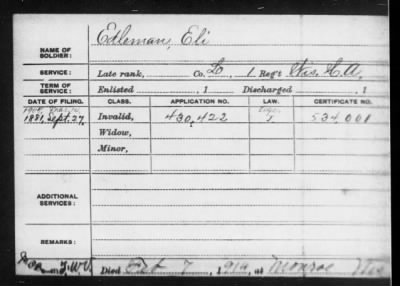 NAME OF SOLDIER: Edleman, Eli
SERVICE: Late rank, Co. L, 1 Reg't Wis. H.A.
TERM OF SERVICE: Enlisted , 1 Discharged , 1
DATE OF FILING. CLASS. APPLICATION NO. LAW. CERTIFICATE NO.
1881, Sept. 27, Invalid, 430,422 534,001
Widow,
Minor,
ADDITIONAL SERVICES:
REMARKS:
Died 7, 191 , at Monroe Wis